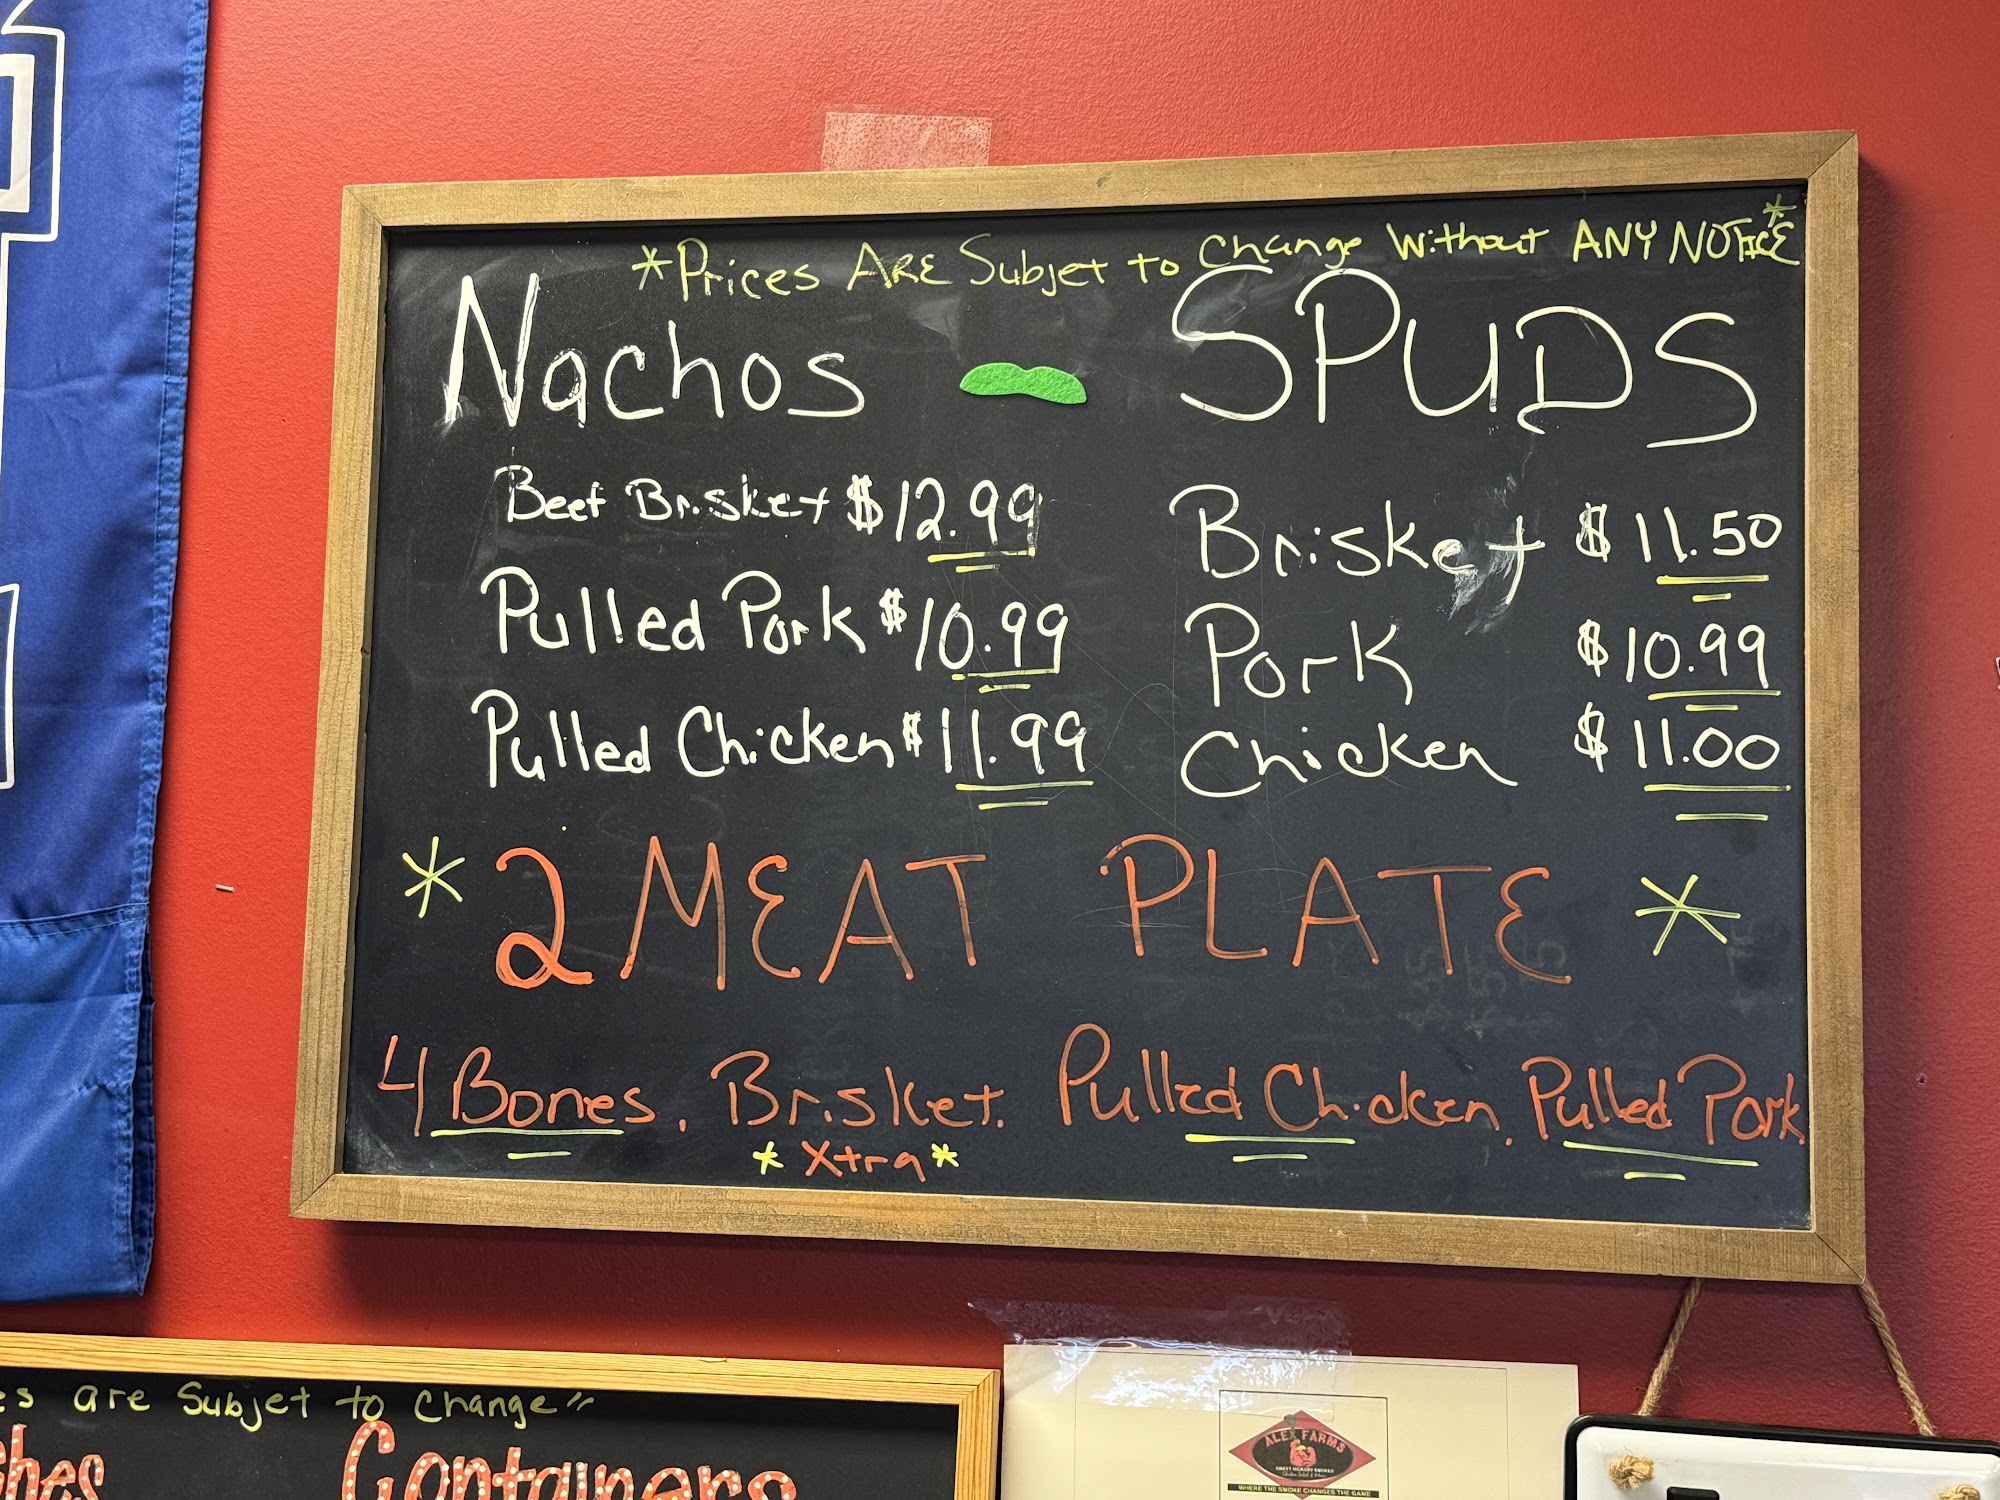 *Prices ARE Subjet to Change Without ANY NOTICE*
Nachos - SPUDS
Beef Brisket $12.99
Pulled Pork $10.99
Pulled Chicken $11.99
Brisket $11.50
Pork $10.99
Chicken $11.00
* 2 MEAT PLATE *
4 Bones. Brisket. Pulled Chicken. Pulled Pork
*Xtra*
are Subjet to change"
Containers
ALEX FARMS
WHERE THE SMOKE CHANGES THE GAME